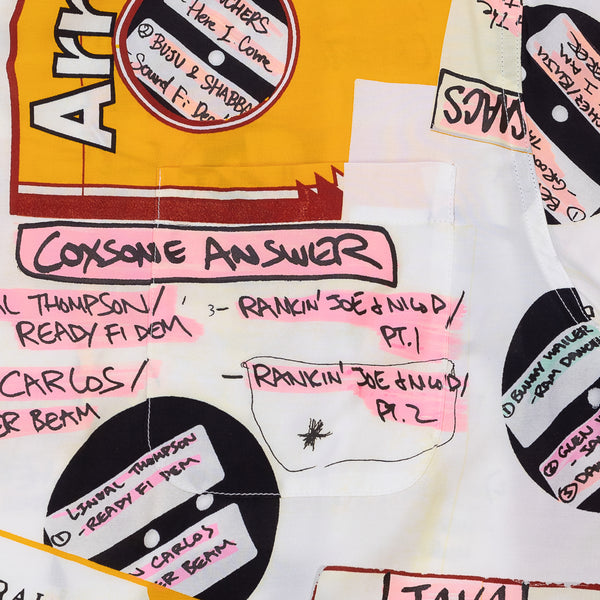 Arr
CHERS
Here I Come
② BUJU & SHABBA
Sound Fi Dea
The
GMACS
I AM
COXSONE ANSWER
AL THOMPSON/
READY FI DEM
3- RANKIN' JOE & NIGO D/
PT.1
CARLOS/
ER BEAM
- RANKIN' JOE & NIGO D/
PT.2
① BUNNY WAILER
- RAM DANCEH
② GLEN
③ DA
① LINVAL THOMPSON
- READY FI DEM
N CARLOS
ER BEAM
RAL
JAVA